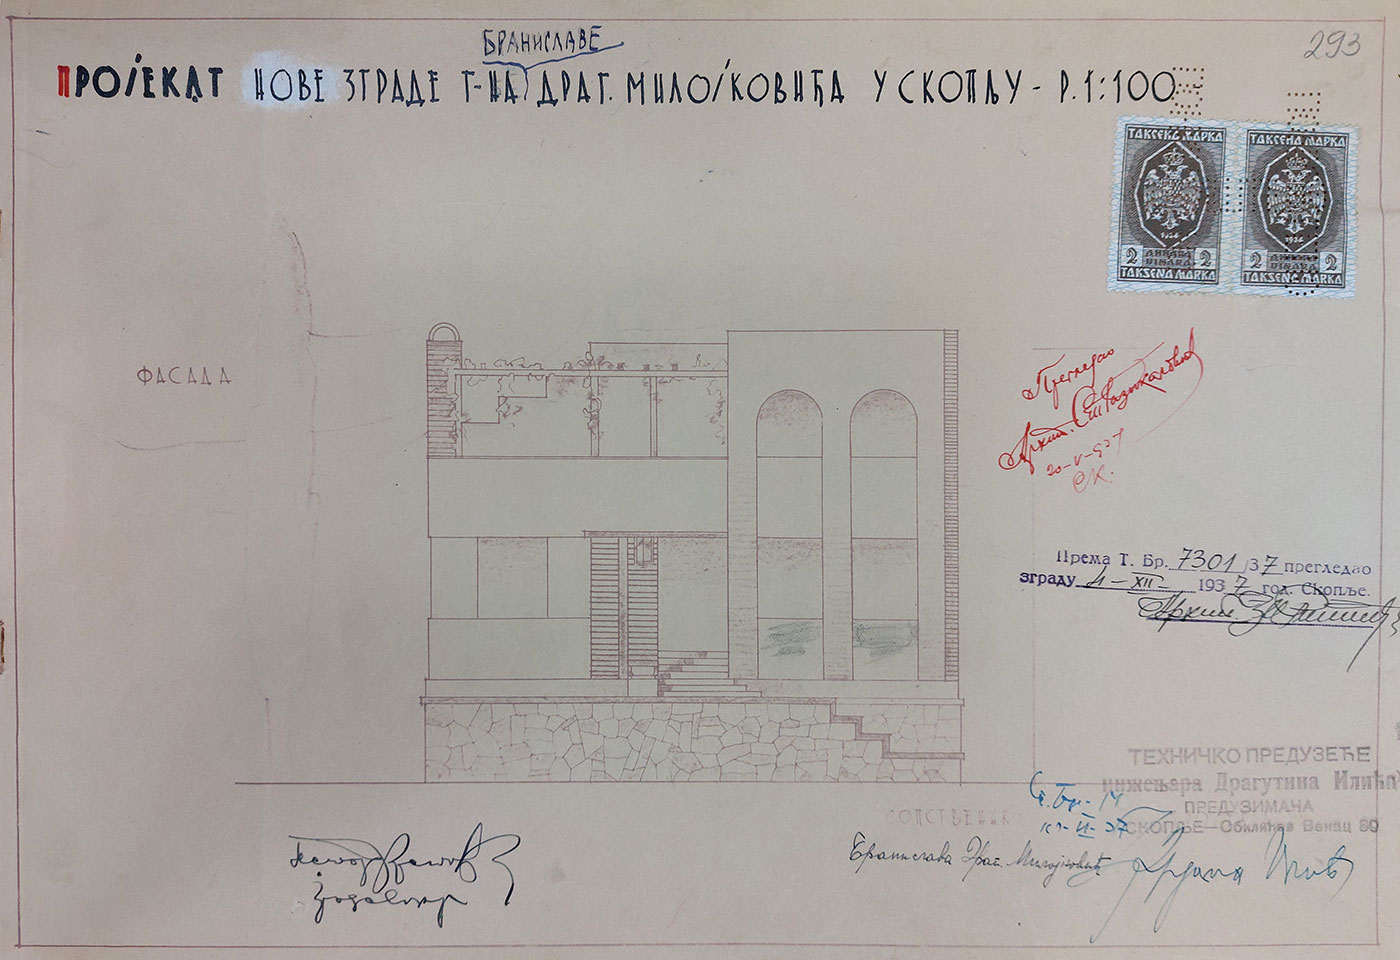 293
БРАНИСЛАВЕ
ПРОЈЕКАТ НОВЕ ЗГРАДЕ Г-НА ДРАГ. МИЛОЈКОВИЋА У СКОПЉУ - Р. 1:100
ТАКСЕНА МАРКА
1934
2 ДИНАРА DINARA 2
TAKSENA MARKA
ТАКСЕНА МАРКА
1934
2 ДИНАРА DINARA 2
TAKSENA MARKA
ФАСАДА
Прегледао
Архит.
20-V-937
Према Т. Бр. 7301/37 прегледао
зграду 4-XII- 1937 год. Скопље.
Архит.
ТЕХНИЧКО ПРЕДУЗЕЋЕ
инжењара Драгутина Илића
ПРЕДУЗИМАЧА
СКОПЉЕ—Обилићев Венац 80
СОПСТВЕНИК
Бранислава Драг. Милојковић